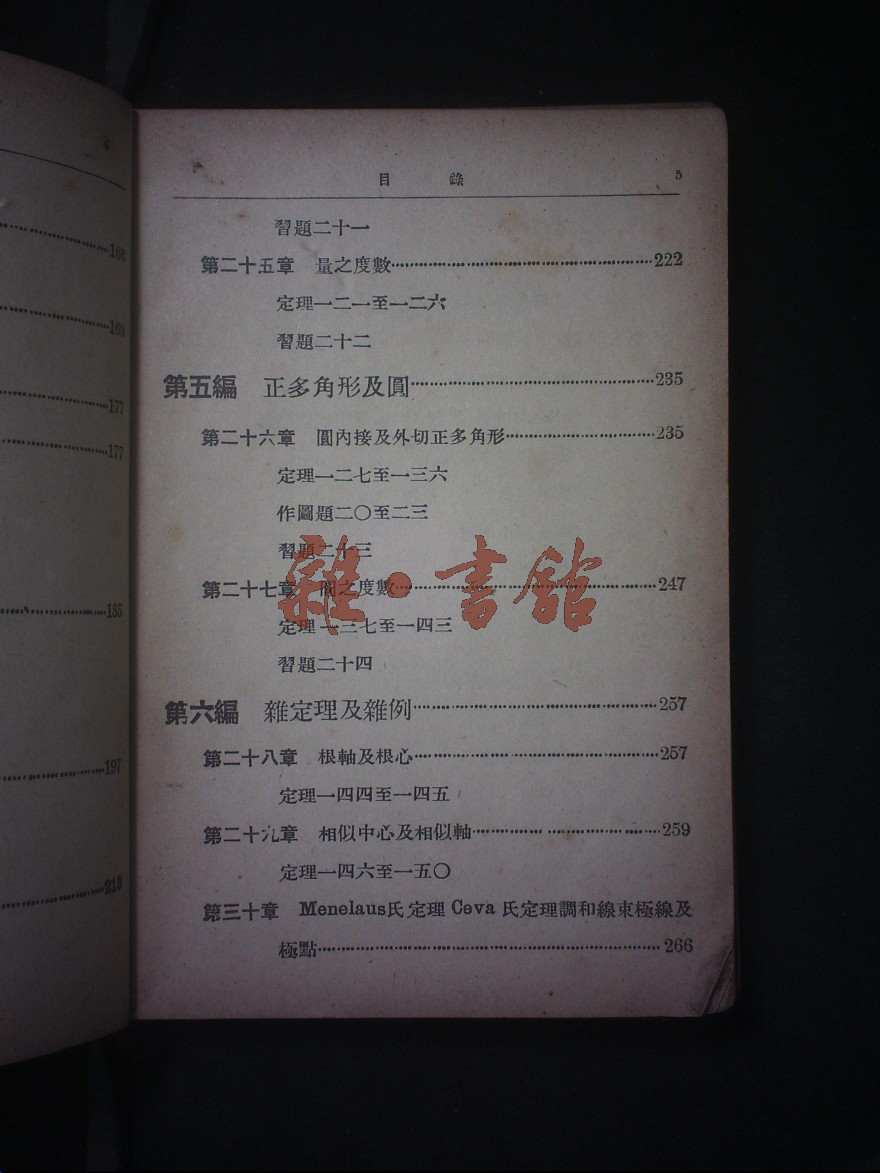 168
169
177
177
185
197
213
目　錄　5
習題二十一
第二十五章　量之度數……222
定理一二一至一二六
習題二十二
第五編　正多角形及圓……235
第二十六章　圓內接及外切正多角形……235
定理一二七至一三六
作圖題二〇至二三
習題二十三
第二十七章　圓之度數……247
定理一三七至一四三
習題二十四
第六編　雜定理及雜例……257
第二十八章　根軸及根心……257
定理一四四至一四五
第二十九章　相似中心及相似軸……259
定理一四六至一五〇
第三十章　Menelaus氏定理 Ceva 氏定理調和線束極線及
極點……266
雜·書館